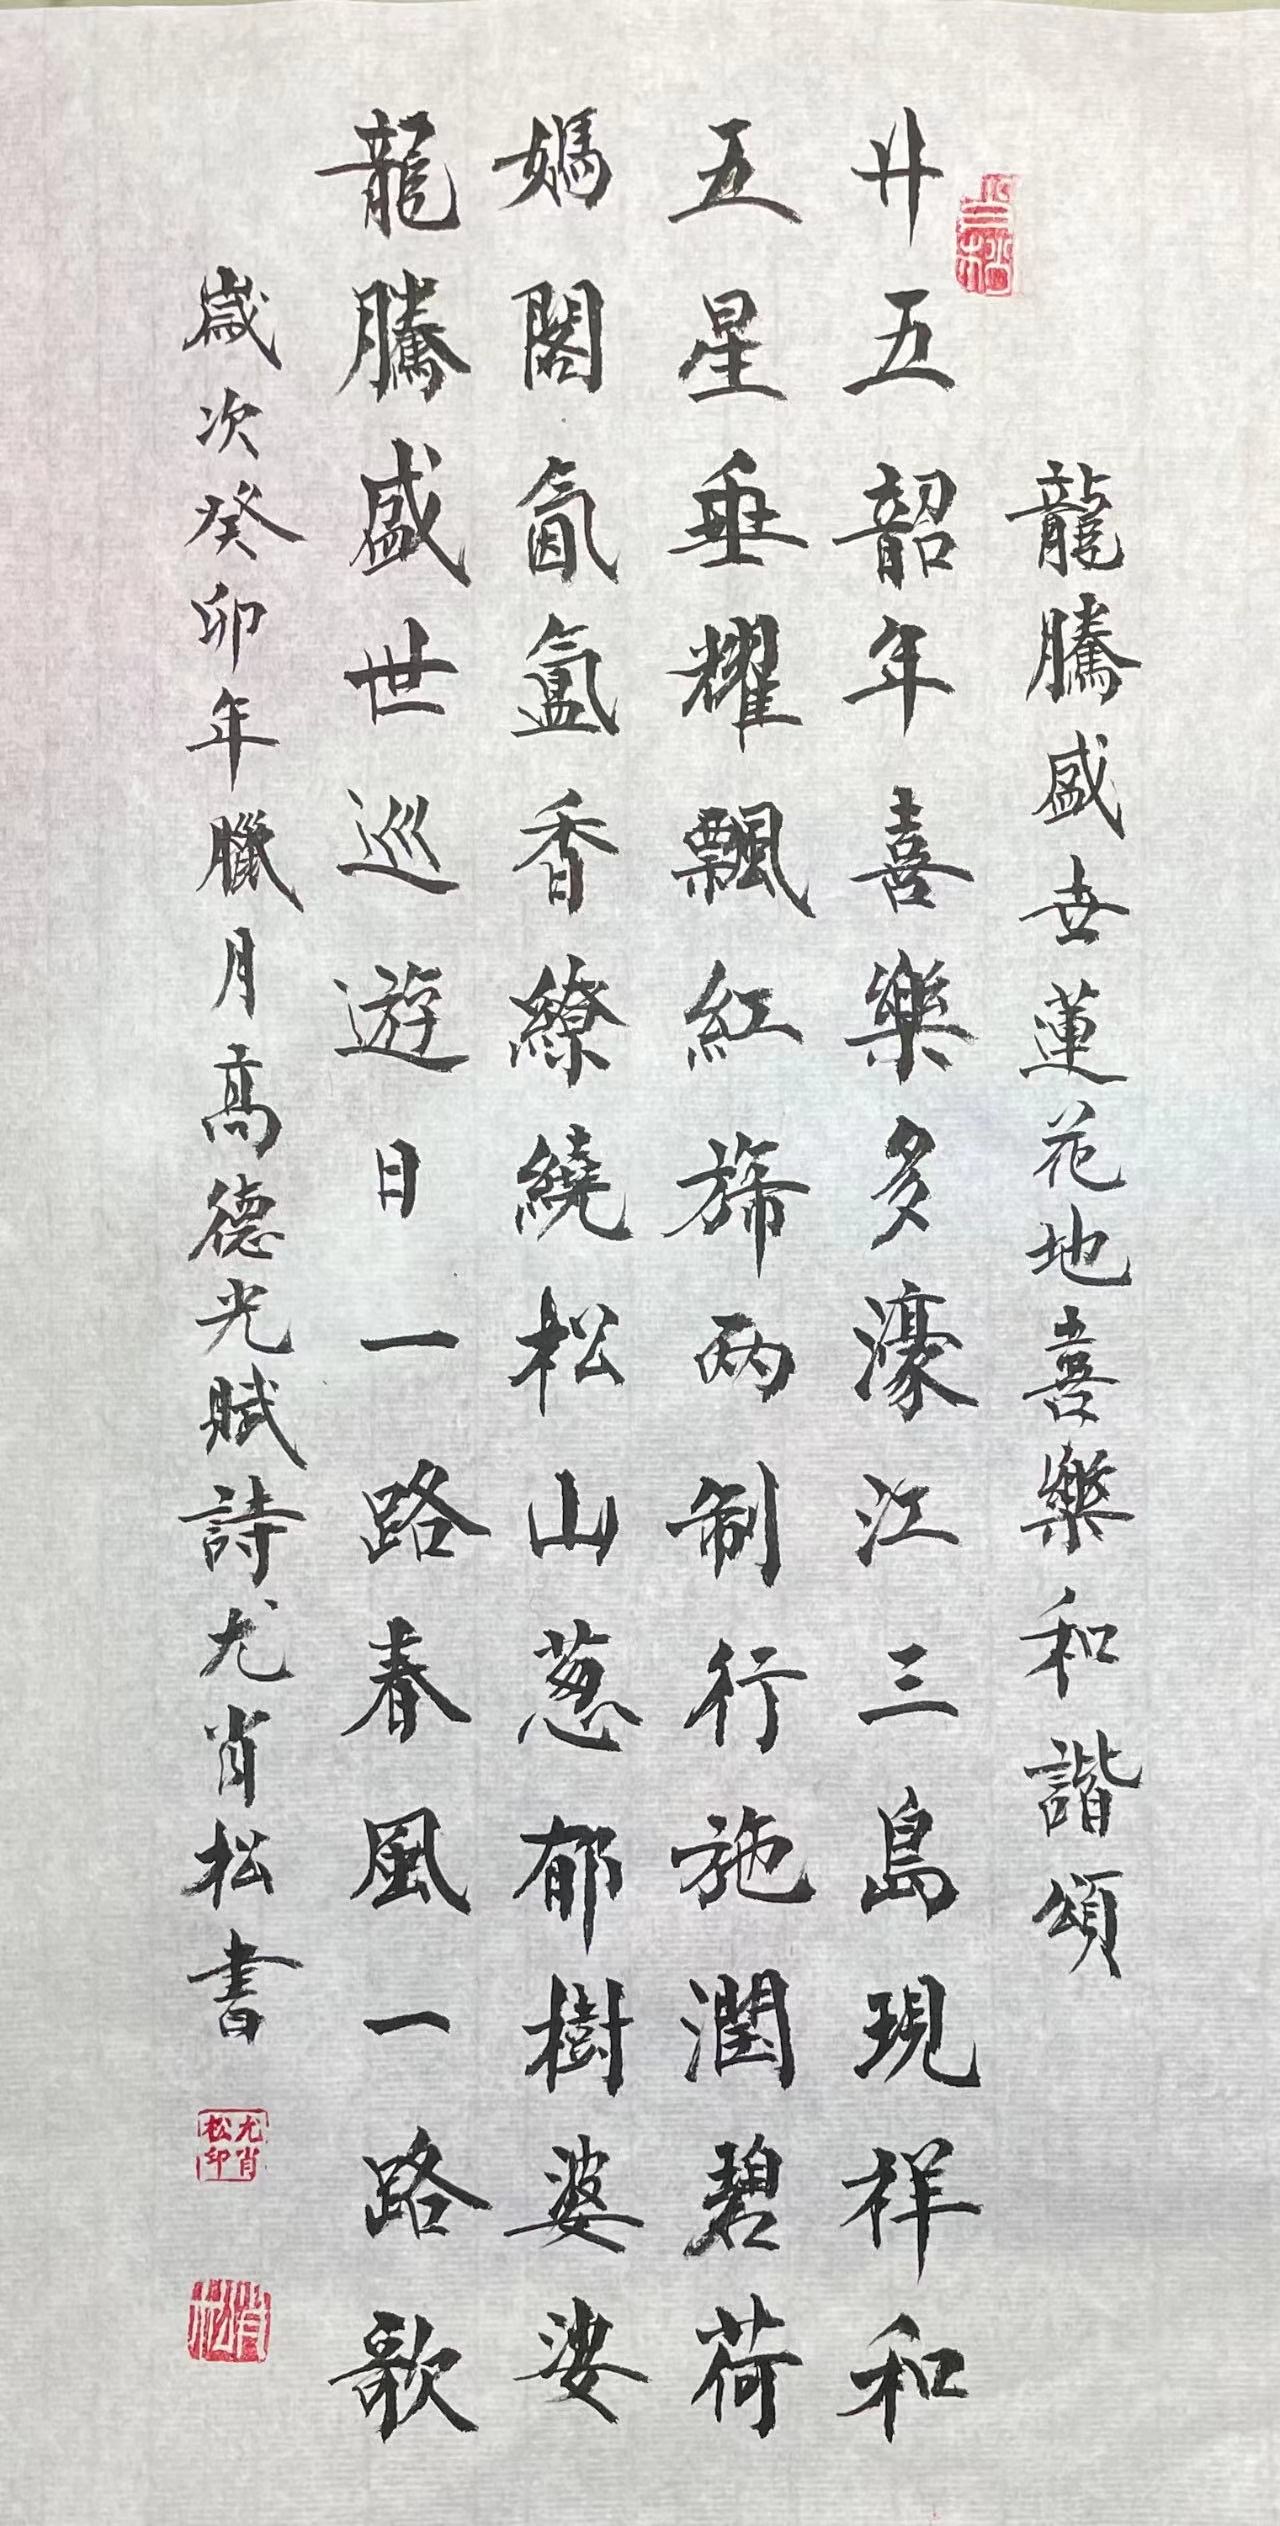 龍騰盛世蓮花地喜樂和諧頌
廿五韶年喜樂多濠江三島現祥和
五星垂耀飄紅旆兩制行施潤碧荷
媽閣氤氳香繚繞松山蔥郁樹婆娑
龍騰盛世巡遊日一路春風一路歌
歲次癸卯年臘月高德光賦詩尤肖松書
尤肖松印
肖松